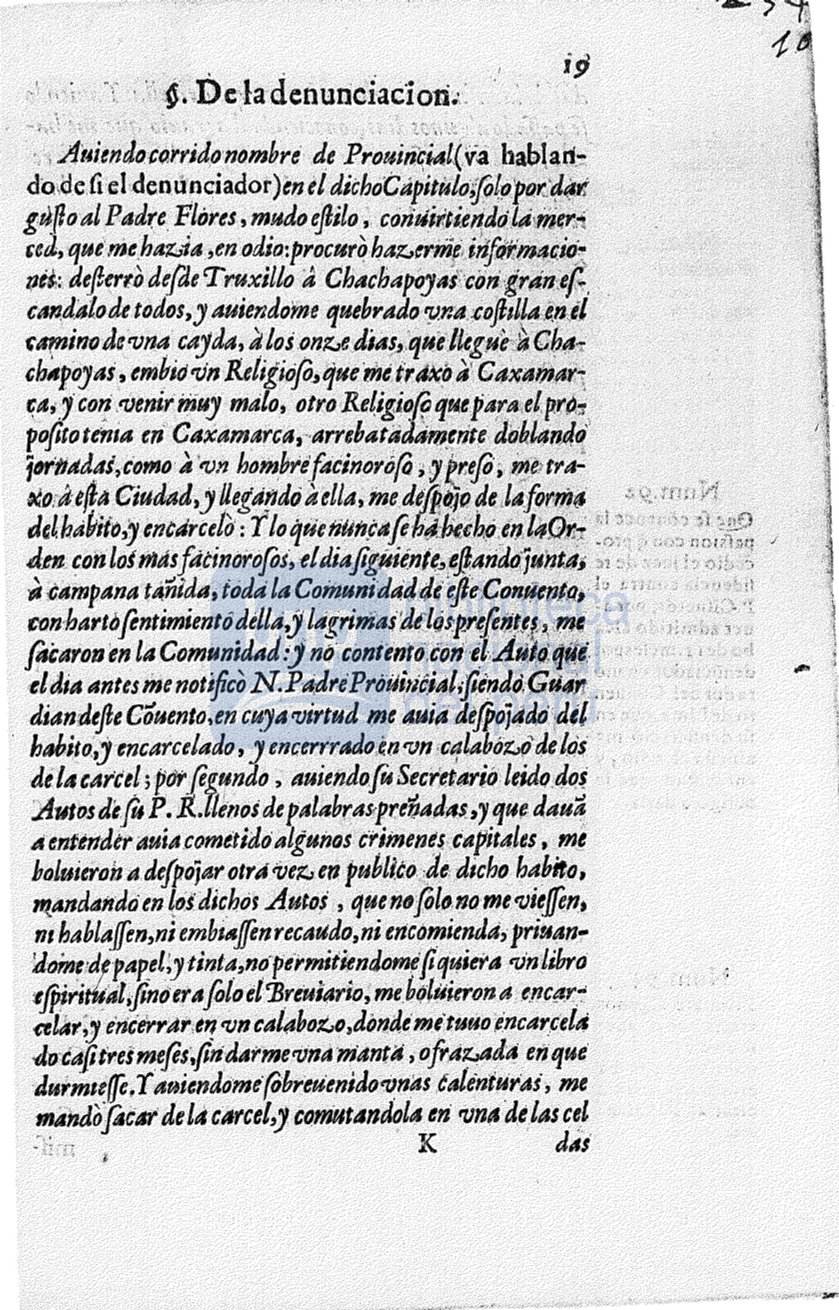 19
10
§. De la denunciacion.
Auiendo corrido nombre de Prouincial (va hablan-
do de si el denunciador) en el dicho Capitulo, ſolo por dar
guſto al Padre Flores, mudo eſtilo, conuirtiendo la mer-
ced, que me hazia, en odio: procurò hazerme informacio-
nes: deſterrò deſde Truxillo â Chachapoyas con gran eſ-
candalo de todos, y auiendome quebrado vna coſtilla en el
camino de vna cayda, à los onze dias, que lleguè à Cha-
chapoyas, embiò vn Religioſo, que me traxo à Caxamar-
ca, y con venir muy malo, otro Religioſo que para el pro-
poſito tenia en Caxamarca, arrebatadamente doblando
jornadas, como à vn hombre facinoroſo, y preſo, me tra-
xo â eſta Ciudad, y llegando à ella, me deſpojo de la forma
del habito, y encarcelò: Y lo que nunca ſe ha hecho en la Or-
den con los mas facinoroſos, el dia ſiguiente, eſtando junta,
à campana tañida, toda la Comunidad de eſte Conuento,
con harto ſentimiento della, y lagrimas de los preſentes, me
ſacaron en la Comunidad: y no contento con el Auto que
el dia antes me notificò N. Padre Prouincial, ſiendo Guar
dian deſte Cõuento, en cuya virtud me auia deſpojado del
habito, y encarcelado, y encerrrado en vn calabozo de los
de la carcel; por ſegundo, auiendo ſu Secretario leido dos
Autos de ſu P. R. llenos de palabras preñadas, y que dauã
a entender auia cometido algunos crimenes capitales, me
boluieron a deſpojar otra vez en publico de dicho habito,
mandando en los dichos Autos, que no ſolo no me vieſſen,
ni hablaſſen, ni embiaſſen recaudo, ni encomienda, priuan-
dome de papel, y tinta, no permitiendome ſi quiera vn libro
eſpiritual, ſino era ſolo el Breuiario, me boluieron a encar-
celar, y encerrar en vn calabozo, donde me tuuo encarcela
do caſi tres meſes, ſin darme vna manta, o frazada en que
durmieſſe. Y auiendome ſobreuenido vnas calenturas, me
mandò ſacar de la carcel, y comutandola en vna de las cel
K das